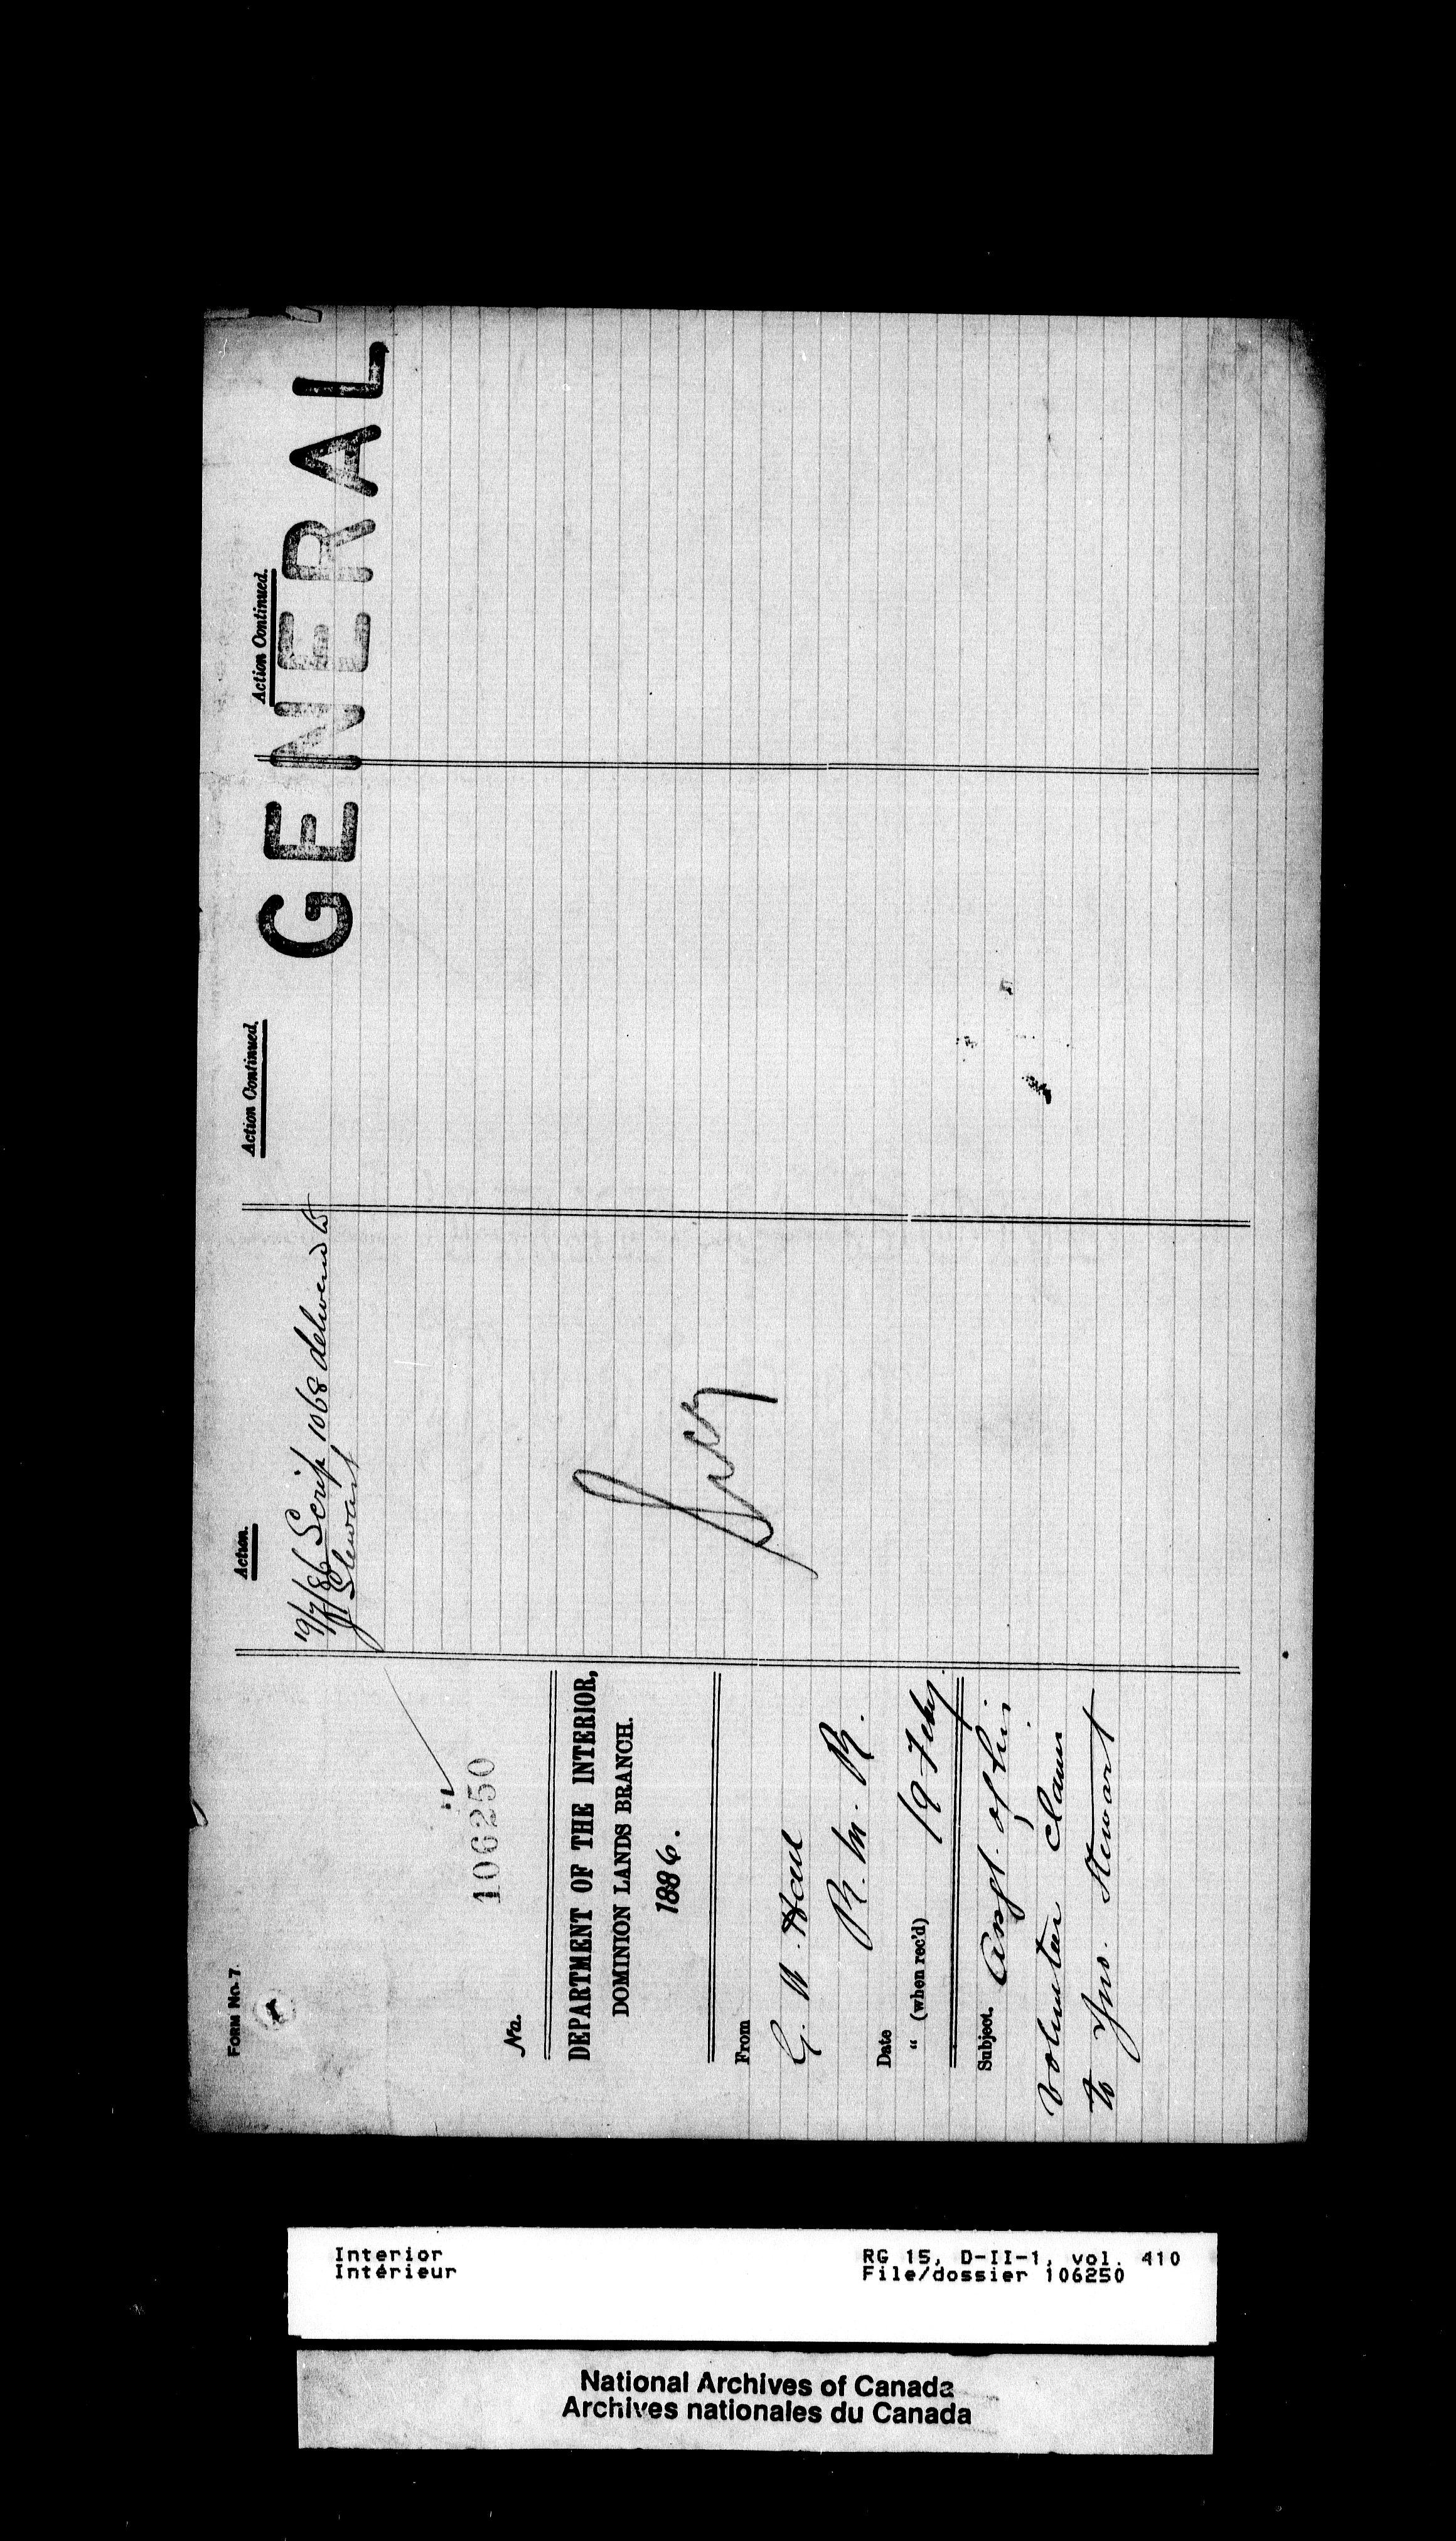 FORM No. 7
No.
106250
DEPARTMENT OF THE INTERIOR,
DOMINION LANDS BRANCH.
1886.
From
G. W. Hall
R. M. R.
Date
" (when rec'd) 19 Feby.
Subject. Asgt. of his
volunteer claim
to Jno. Stewart
Action.
19/7/86 Scrip 1068 delivered to
J Stewart
Action Continued.
Action Continued.
GENERAL
Interior
Intérieur
RG 15, D-II-1, vol. 410
File/dossier 106250
National Archives of Canada
Archives nationales du Canada